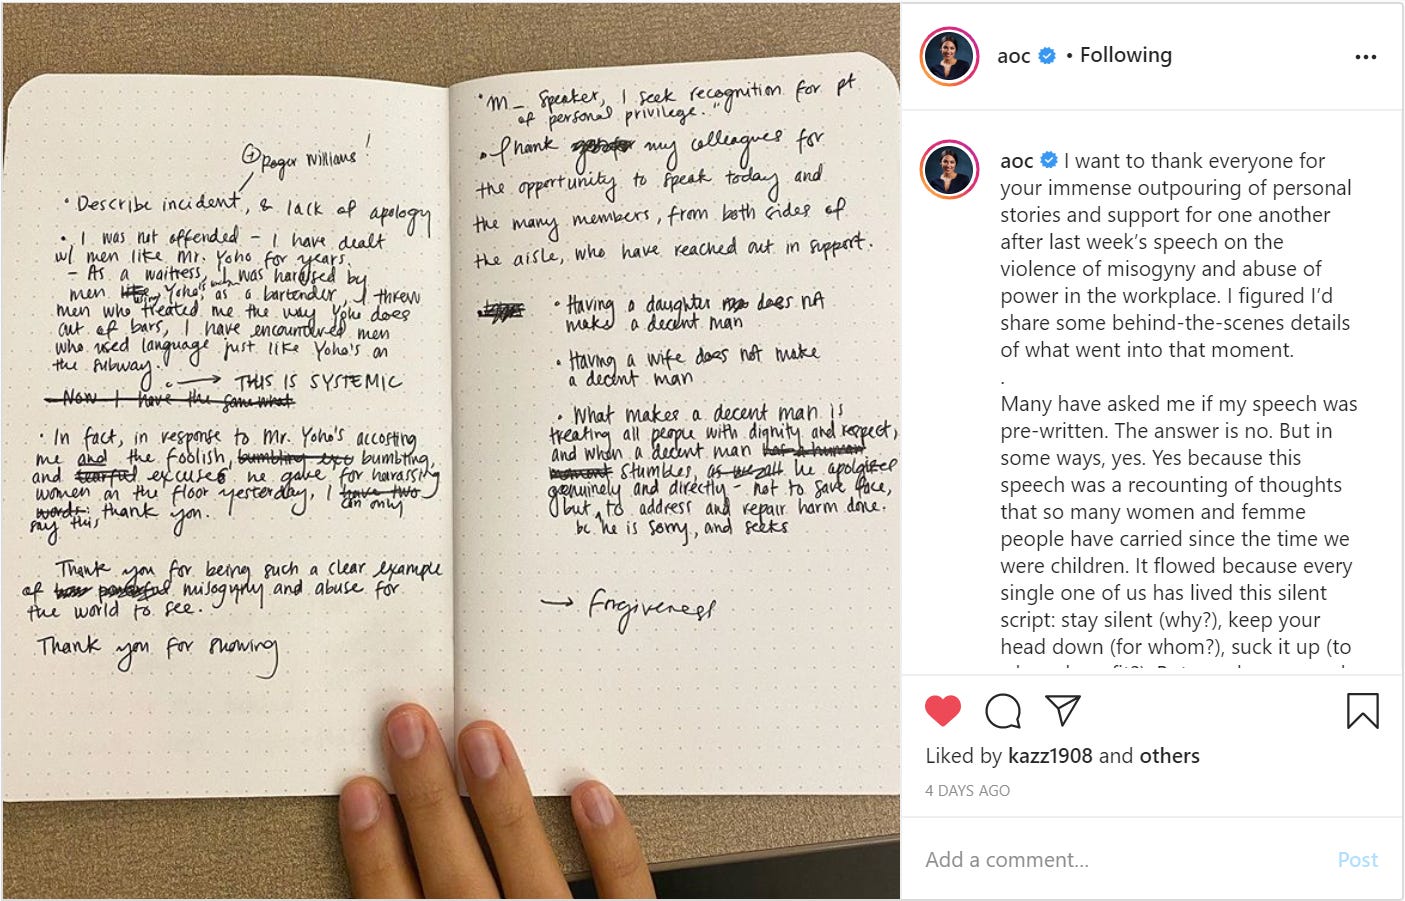 + Roger Williams!
• Describe incident, & lack of apology
• I was not offended - I have dealt
w/ men like Mr. Yoho for years.
- As a waitress, I was harassed by
men like Yoho's as a bartender, I threw
men who treated me the way Yoho does
out of bars, I have encountered men
who used language just like Yoho's on
the subway.
→ THIS IS SYSTEMIC
Now I have the somewhat
• In fact, in response to Mr. Yoho's accosting
me and the foolish, bumbling exc bumbling,
and tearful excuses he gave for harassing
women on the floor yesterday, I have two
can only
words: thank you.
say this,
Thank you for being such a clear example
of powerful misogyny and abuse for
the world to see.
Thank you for showing
• "M_ Speaker, I seek recognition for pt
of personal privilege."
• Thank my colleagues for
the opportunity to speak today and
the many members, from both sides of
the aisle, who have reached out in support.
• Having a daughter does not
make a decent man
• Having a wife does not make
a decent man
• What makes a decent man is
treating all people with dignity and respect,
and when a decent man has a human
moment stumbles, as we all he apologizes
genuinely and directly - not to save face,
but, to address and repair harm done.
bc he is sorry, and seeks
→ Forgiveness
aoc • Following
aoc I want to thank everyone for
your immense outpouring of personal
stories and support for one another
after last week's speech on the
violence of misogyny and abuse of
power in the workplace. I figured I'd
share some behind-the-scenes details
of what went into that moment.
.
Many have asked me if my speech was
pre-written. The answer is no. But in
some ways, yes. Yes because this
speech was a recounting of thoughts
that so many women and femme
people have carried since the time we
were children. It flowed because every
single one of us has lived this silent
script: stay silent (why?), keep your
head down (for whom?), suck it up (to
Liked by kazz1908 and others
4 DAYS AGO
Add a comment...
Post